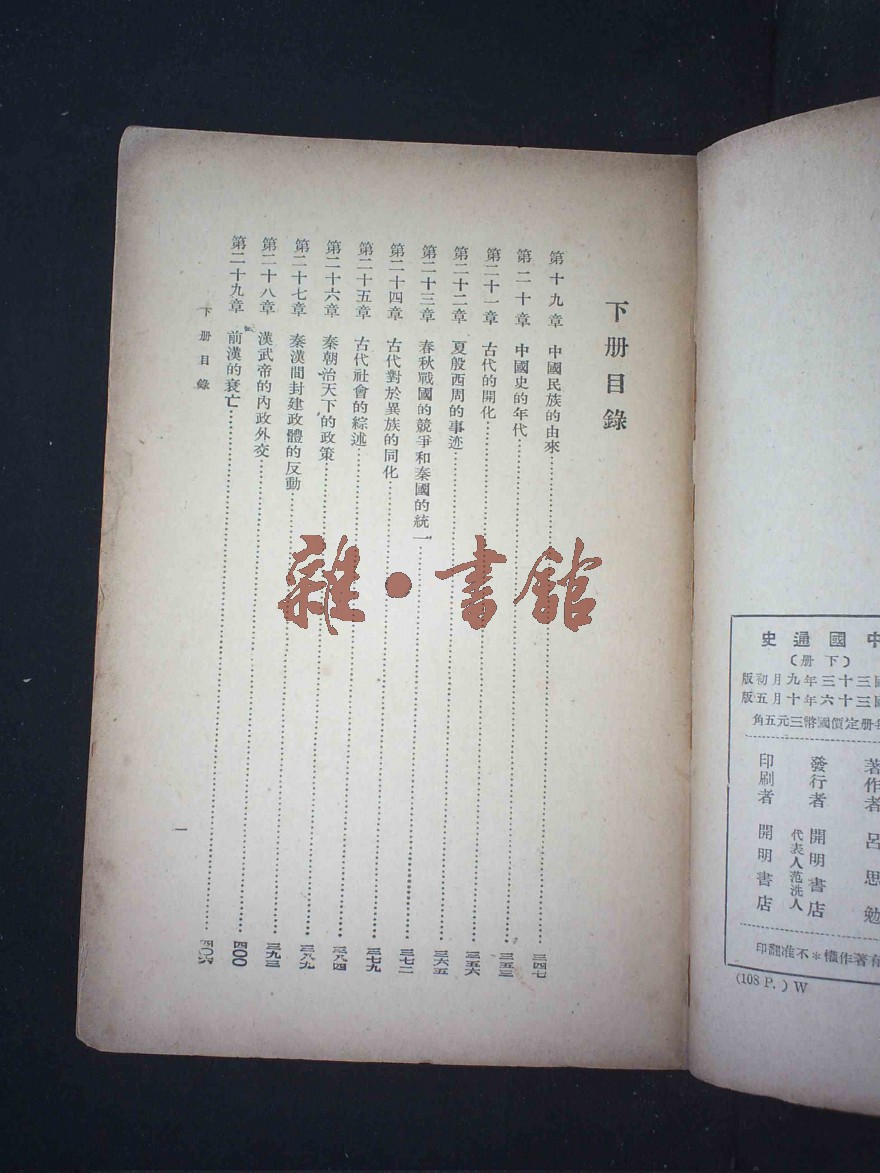 中國通史
（下册）
國三十三年九月初版
國三十六年十月五版
每册定價國幣三元五角
著作者 呂思勉
發行者 開明書店
代表人范洗人
印刷者 開明書店
有著作權＊不准翻印
(108 P.) W
下册目錄
第十九章 中國民族的由來……三四七
第二十章 中國史的年代……三五三
第二十一章 古代的開化……三五六
第二十二章 夏殷西周的事迹……三六五
第二十三章 春秋戰國的競爭和秦國的統一……三七二
第二十四章 古代對於異族的同化……三七九
第二十五章 古代社會的綜述……三八四
第二十六章 秦朝治天下的政策……三八九
第二十七章 秦漢間封建政體的反動……三九三
第二十八章 漢武帝的內政外交……四〇〇
第二十九章 前漢的衰亡……四〇六
下册目錄
一
雜·書館